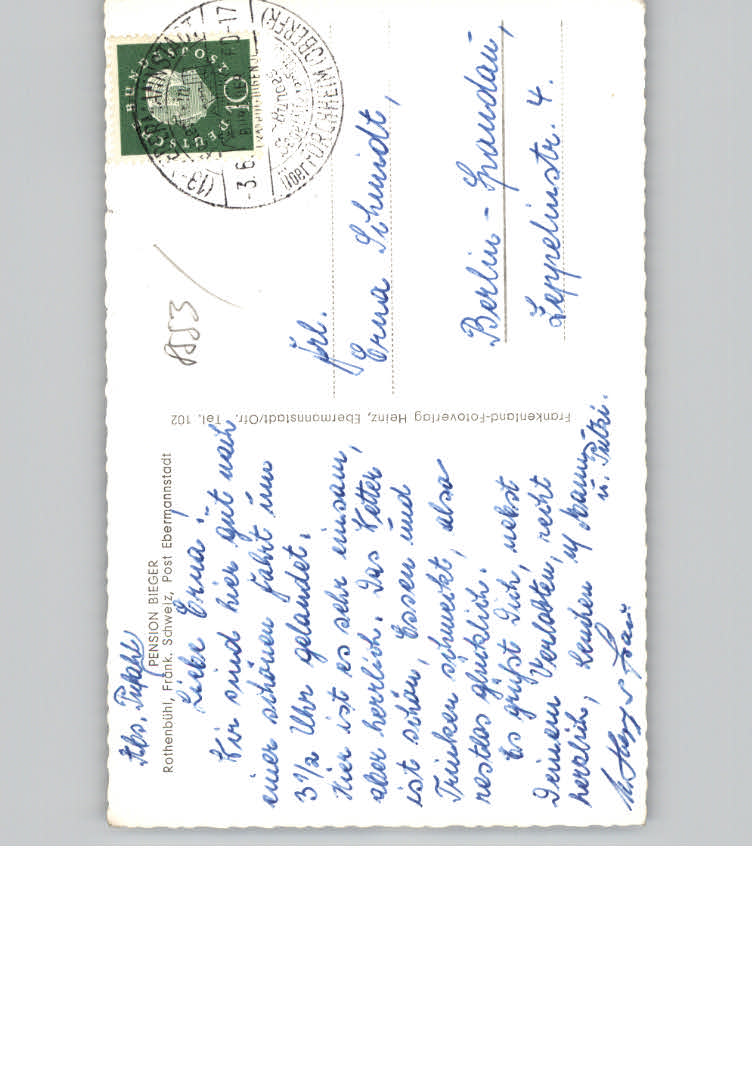 Abs.
PENSION BIEGER
Rothenbühl, Fränk. Schweiz, Post Ebermannstadt
Liebe Erna!
Wir sind hier gut nach
einer schönen Fahrt um
3 1/2 Uhr gelandet.
Hier ist es sehr einsam,
aber herrlich. Das Wetter
ist schön, Essen und
Trinken schmeckt, also
restlos glücklich.
Es grüßt Dich, nebst
Deinem Verlobten, recht
herzlich,
u. Frau
u. Putzi.
Frankenland-Fotoverlag Heinz, Ebermannstadt/Ofr. Tel. 102
Frl.
Erna Schmidt,
Berlin - Spandau,
Zeppelinstr. 4.
DEUTSCHE BUNDESPOST
10
-3.6.
-17
über FORCHHEIM (OBERFR)